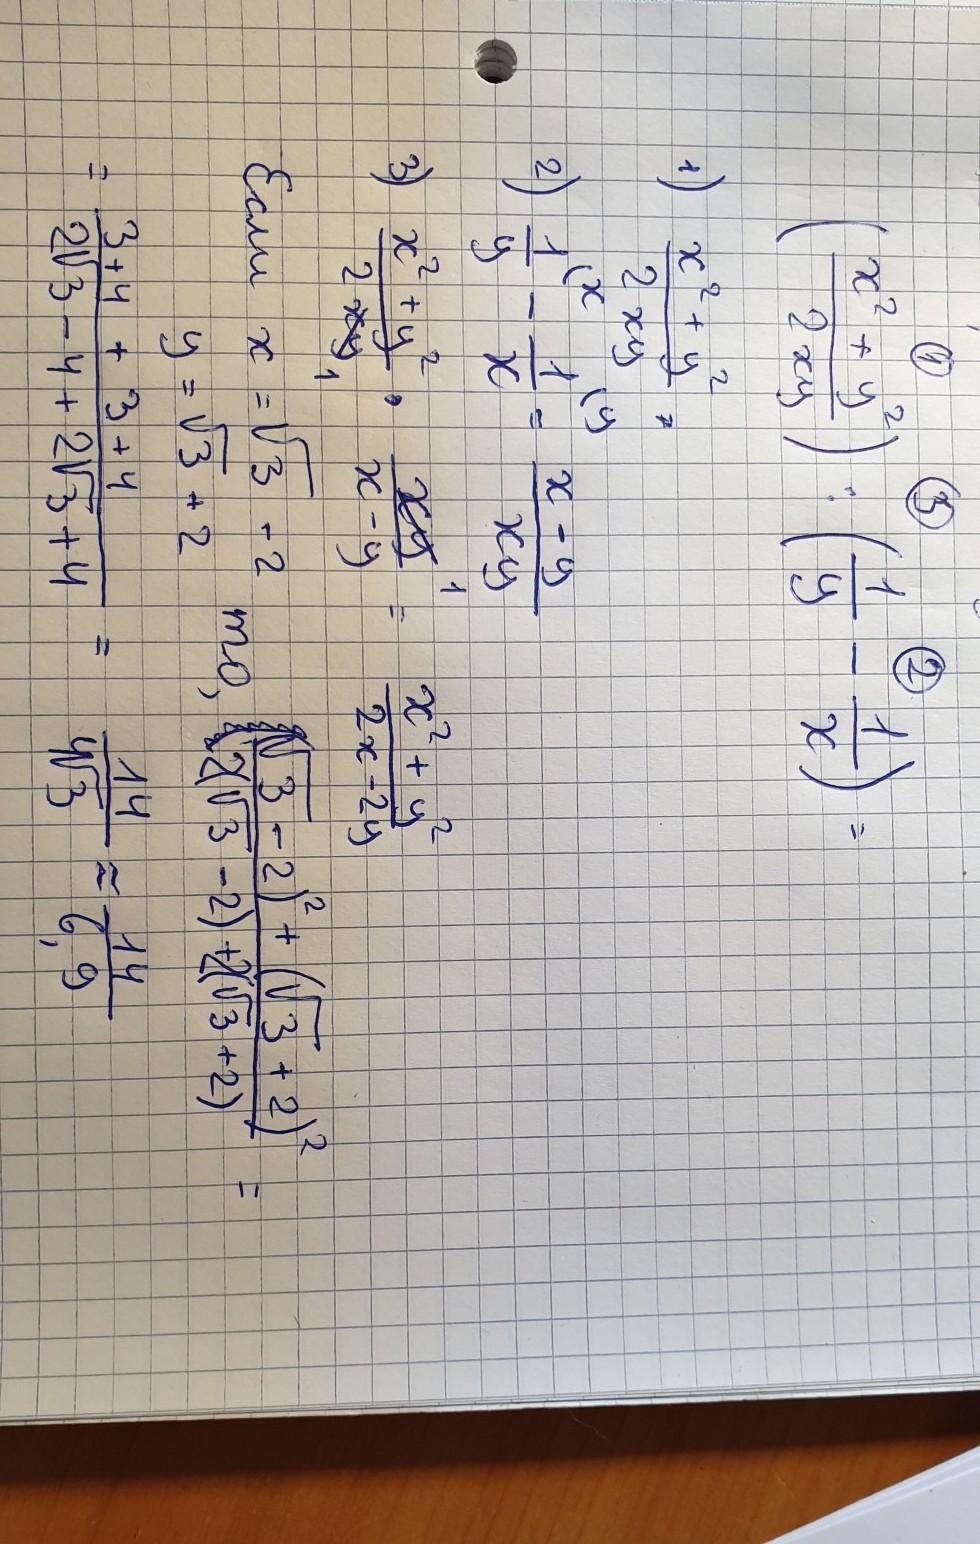 ① ③ ②
(x² + y² / 2xy) : (1/y - 1/x) =
1) x² + y² / 2xy
2) 1/y (x - 1/x (y = x - y / xy
3) x² + y² / 2xy 1 · xy 1 / x - y = x² + y² / 2x - 2y
Если x = √3 - 2
y = √3 + 2
то, (√3 - 2)² + (√3 + 2)² / 2(√3 - 2) + 2(√3 + 2) =
= 3+4 + 3+4 / 2√3 - 4 + 2√3 + 4 = 14 / 4√3 ≈ 14 / 6,9